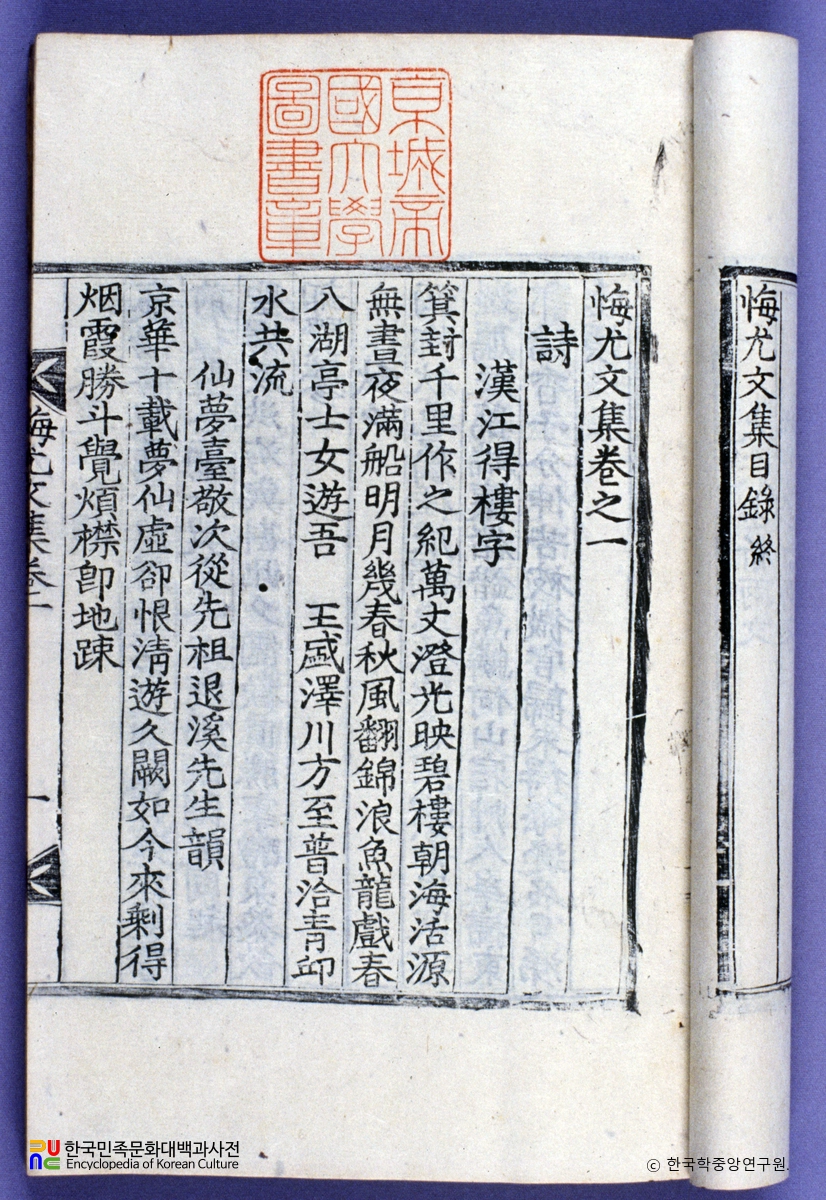 悔尤文集目錄終
京城帝
國大學
圖書章
悔尤文集卷之一
詩
漢江得樓字
箕封千里作之紀萬丈澄光映碧樓朝海活源
無晝夜滿船明月幾春秋風翻錦浪魚龍戲春
八湖亭士女遊吾 王盛澤川方至普洽靑邱
水共流
仙夢臺敬次從先祖退溪先生韻
京華十載夢仙虛卻恨淸遊久闕如今來剩得
烟霞勝斗覺煩襟卽地踈
悔尤文集卷一
一
한국민족문화대백과사전
Encyclopedia of Korean Culture
© 한국학중앙연구원.